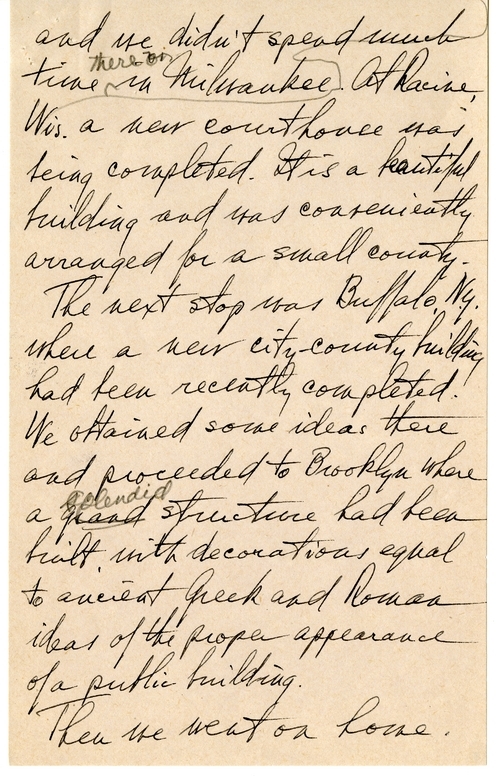 and we didn't spend much
there on
time in Milwaukee. At Racine,
Wis. a new courthouse was
being completed. It is a beautiful
building and was conveniently
arranged for a small county.
The next stop was Buffalo, N.y.
where a new city-county building
had been recently completed.
We obtained some ideas there
and proceeded to Brooklyn where
splendid
a grand structure had been
built, with decorations equal
to ancient Greek and Roman
ideas of the proper appearance
of a public building.
Then we went on home.